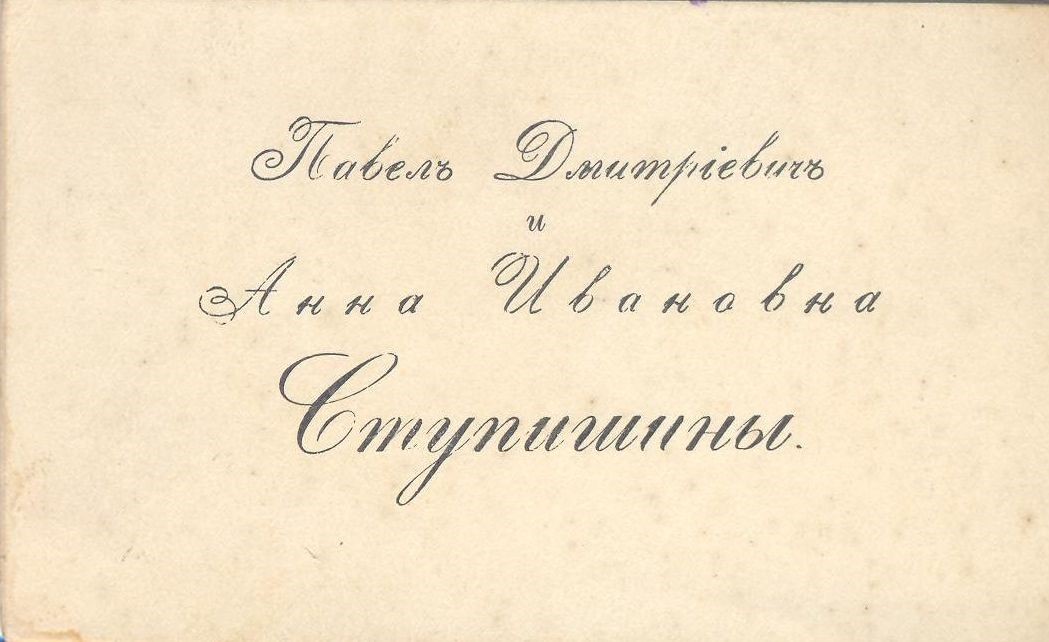 Павелъ Дмитріевичъ
и
Анна Ивановна
Ступишины.